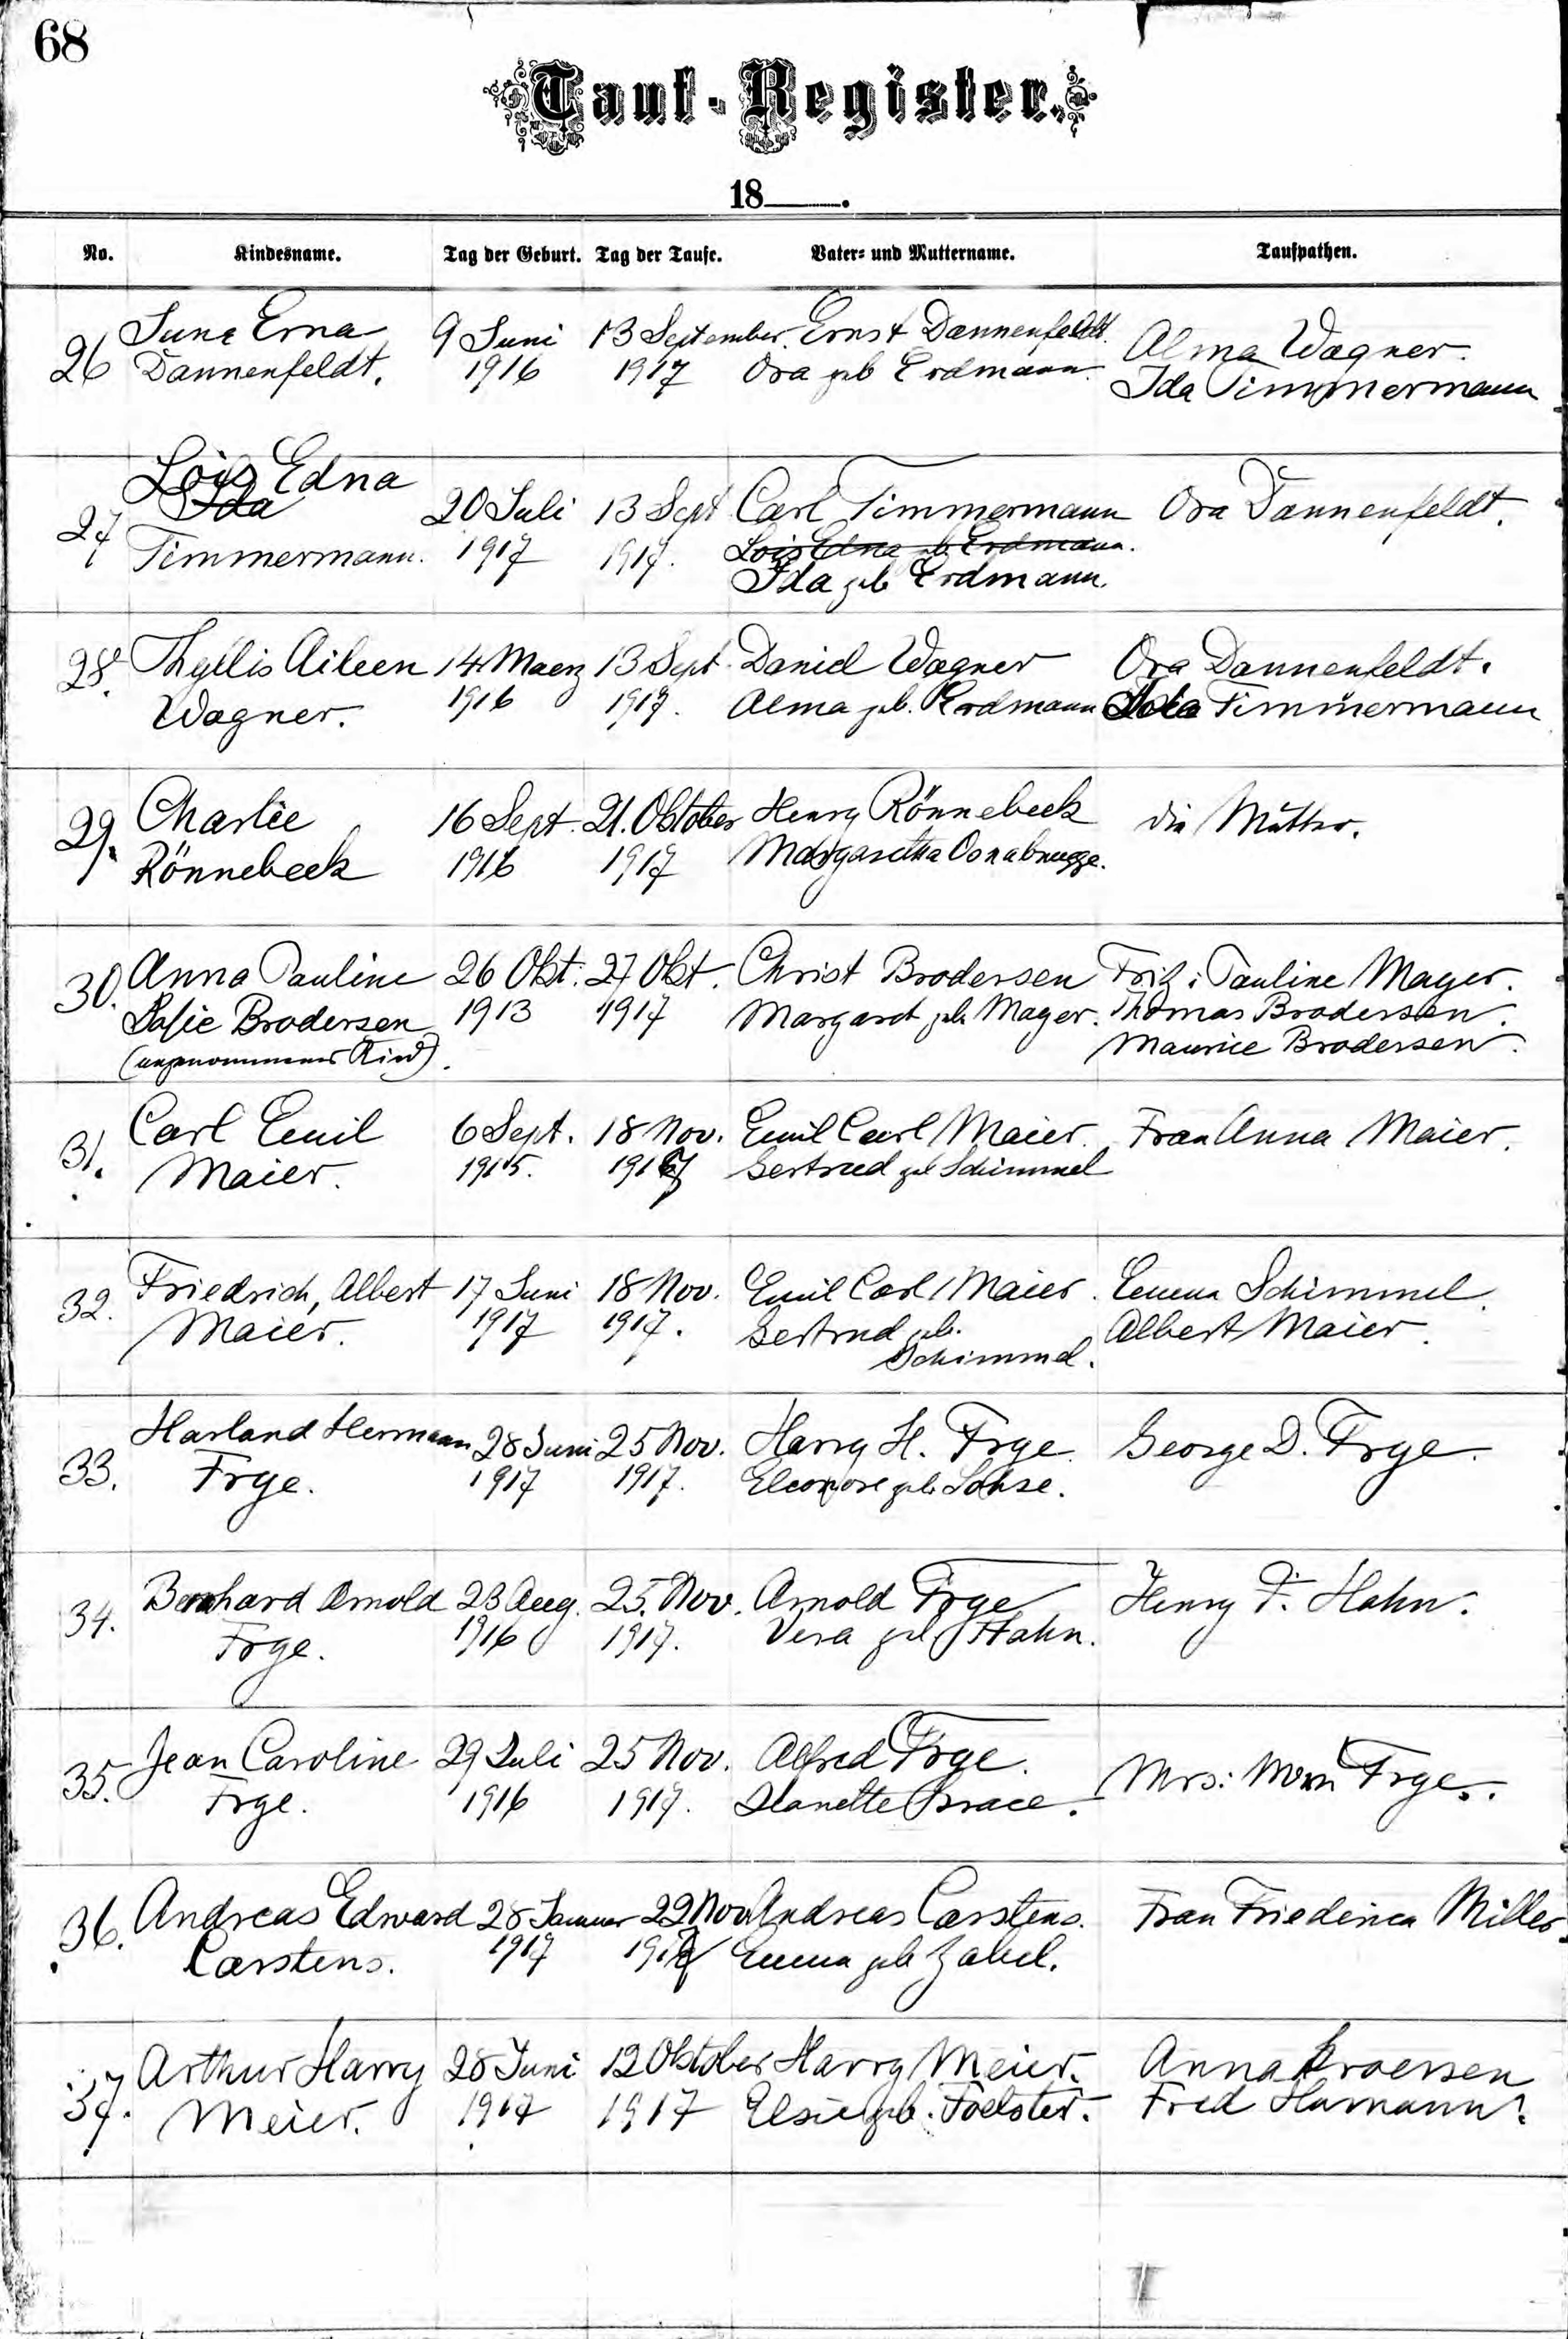 68
Tauf-Register.
18___.
No. Kindesname. Tag der Geburt. Tag der Taufe. Vater- und Muttername. Taufpathen.
26 June Erna 9 Juni 13 September. Ernst Dannenfeldt. Alma Wagner.
Dannenfeldt. 1916 1917 Ora geb Erdmann. Ida Timmermann
27 Lois Edna
Ida 20 Juli 13 Sept Carl Timmermann Ora Dannenfeldt.
Timmermann. 1917 1917. Lois Edna geb Erdmann.
Ida geb Erdmann.
28. Phyllis Aileen 14 Maerz 13 Sept. Daniel Wagner Ora Dannenfeldt.
Wagner. 1916 1917. Alma geb. Erdmann Ida Timmermann
29. Charlie 16 Sept. 21. Oktober Henry Rönnebeck die Mutter.
Rönnebeck 1916 1917 Margaretha Osnabrugge.
30. Anna Pauline 26 Okt. 27 Okt. Christ Brodersen Fritz : Pauline Mayer.
Sofie Brodersen 1913 1917 Margaret geb Mayer. Thomas Brodersen.
(angenommenes Kind). Maurice Brodersen.
31. Carl Emil 6 Sept. 18 Nov. Emil Carl Maier. Frau Anna Maier.
Maier. 1915. 1917 Gertrud geb Schimmel
32. Friedrich, Albert 17 Juni 18 Nov. Emil Carl Maier. Emma Schimmel.
Maier. 1917 1917. Gertrud geb. Albert Maier.
Schimmel.
33. Harland Hermann 28 Juni 25 Nov. Harry H. Frye. George D. Frye.
Frye. 1917 1917. Eleonore geb Lohse.
34. Bernhard Arnold 23 Aug. 25. Nov. Arnold Frye Henry F. Hahn.
Frye. 1916 1917. Vera geb Hahn.
35. Jean Caroline 29 Juli 25 Nov. Alfred Frye. Mrs: Frye.
Frye. 1916 1917. Grace.
36. Andreas Edward 28 Januar 22 Nov Andreas Carstens. Frau Friederica Miller.
Carstens. 1917 1917 Emma geb Zabel.
37. Arthur Harry 28 Juni 12 Oktober Harry Meier. Anna
Meier. 1917 1917 Elsie geb. Foelster. Fred Hamann.